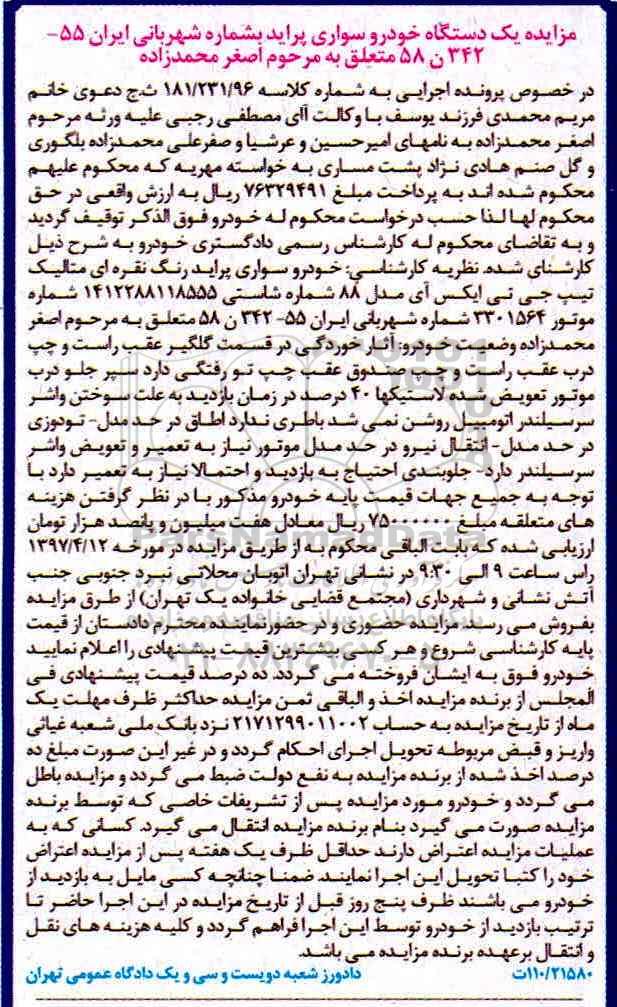 مزایده یک دستگاه خودرو سواری پراید بشماره شهربانی ایران ۵۵-
۳۴۲ ن ۵۸ متعلق به مرحوم اصغر محمدزاده
در خصوص پرونده اجرایی به شماره کلاسه ۱۸۱/۲۳۱/۹۶ ش‌ج دعوی خانم
مریم محمدی فرزند یوسف با وکالت آای مصطفی رجبی علیه ورثه مرحوم
اصغر محمدزاده به نامهای امیرحسین و عرشیا و صفرعلی محمدزاده بلگوری
و گل صنم هادی نژاد پشت مساری به خواسته مهریه که محکوم علیهم
محکوم شده اند به پرداخت مبلغ ۷۶۳۲۹۴۹۱ ریال به ارزش واقعی در حق
محکوم لها لذا حسب درخواست محکوم له خودرو فوق الذکر توقیف گردید
و به تقاضای محکوم له کارشناس رسمی دادگستری خودرو به شرح ذیل
کارشنای شده. نظریه کارشناسی: خودرو سواری پراید رنگ نقره ای متالیک
تیپ جی تی ایکس آی مدل ۸۸ شماره شاستی ۱۴۱۲۲۸۸۱۱۸۵۵۵ شماره
موتور ۳۳۰۱۵۶۴ شماره شهربانی ایران ۵۵- ۳۴۲ ن ۵۸ متعلق به مرحوم اصغر
محمدزاده وضعیت خودرو: آثار خوردگی در قسمت گلگیر عقب راست و چپ
درب عقب راست و چپ صندوق عقب چپ تو رفتگی دارد سپر جلو درب
موتور تعویض شده لاستیکها ۴۰ درصد در زمان بازدید به علت سوختن واشر
سرسیلندر اتومبیل روشن نمی شد باطری ندارد اطاق در حد مدل- تودوزی
در حد مدل- انتقال نیرو در حد مدل موتور نیاز به تعمیر و تعویض واشر
سرسیلندر دارد- جلوبندی احتیاج به بازدید و احتمالا نیاز به تعمیر دارد با
توجه به جمیع جهات قیمت پایه خودرو مذکور با در نظر گرفتن هزینه
های متعلقه مبلغ ۷۵۰۰۰۰۰۰ ریال معادل هفت میلیون و پانصد هزار تومان
ارزیابی شده که بابت الباقی محکوم به از طریق مزایده در مورخه ۱۳۹۷/۴/۱۲
راس ساعت ۹ الی ۹:۳۰ در نشانی تهران اتوبان محلاتی نبرد جنوبی جنب
آتش نشانی و شهرداری (مجتمع قضایی خانواده یک تهران) از طرق مزایده
بفروش می رسد. مزایده حضوری و در حضور نماینده محترم دادستان از قیمت
پایه کارشناسی شروع و هر کسی بیشترین قیمت پیشنهادی را اعلام نمایید
خودرو فوق به ایشان فروخته می گردد. ده درصد قیمت پیشنهادی فی
المجلس از برنده مزایده اخذ و الباقی ثمن مزایده حداکثر ظرف مهلت یک
ماه از تاریخ مزایده به حساب ۲۱۷۱۲۹۹۰۱۱۰۰۲ نزد بانک ملی شعبه غیاثی
واریز و قبض مربوطه تحویل اجرای احکام گردد و در غیر این صورت مبلغ ده
درصد اخذ شده از برنده مزایده به نفع دولت ضبط می گردد و مزایده باطل
می گردد و خودرو مورد مزایده پس از تشریفات خاصی که توسط برنده
مزایده صورت می گیرد بنام برنده مزایده انتقال می گیرد. کسانی که به
عملیات مزایده اعتراض دارند حداقل ظرف یک هفته پس از مزایده اعتراض
خود را کتبا تحویل این اجرا نمایند. ضمنا چنانچه کسی مایل به بازدید از
خودرو می باشند ظرف پنج روز قبل از تاریخ مزایده در این اجرا حاضر تا
ترتیب بازدید از خودرو توسط این اجرا فراهم گردد و کلیه هزینه های نقل
و انتقال برعهده برنده مزایده می باشد.
۱۱۰/۲۱۵۸۰ت دادورز شعبه دویست و سی و یک دادگاه عمومی تهران
ParsNamadData
پایگاه اطلاع رسانی مناقصه مزایده
۰۲۱-۸۸۳۴۹۶۷۰-۵